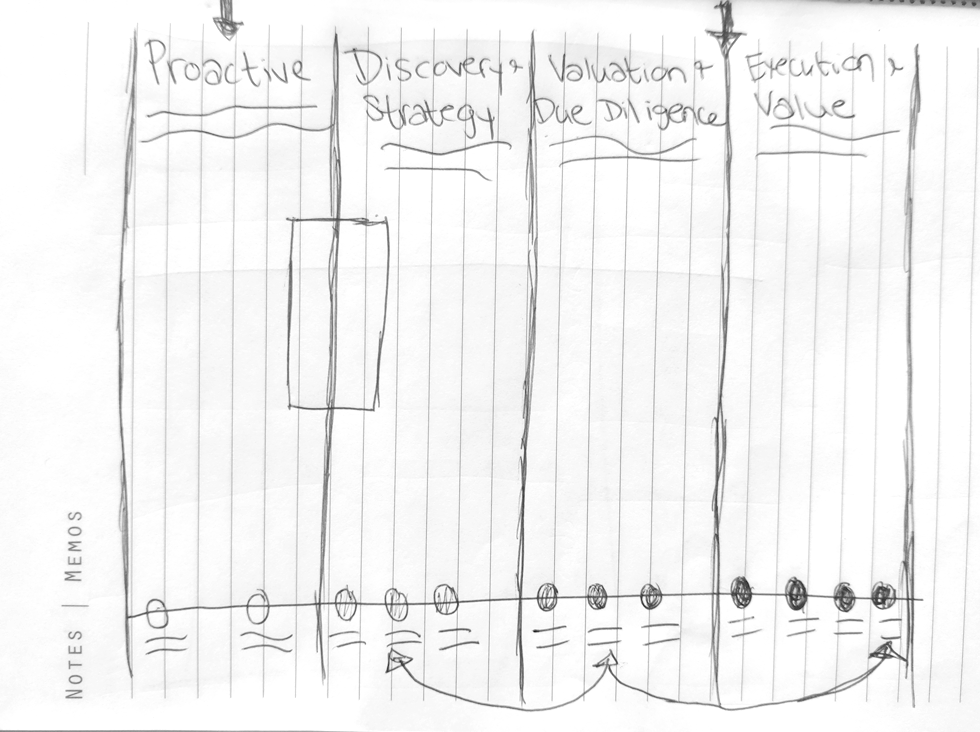 Proactive
Discovery +
Strategy
Valuation +
Due Diligence
Execution +
Value
NOTES | MEMOS